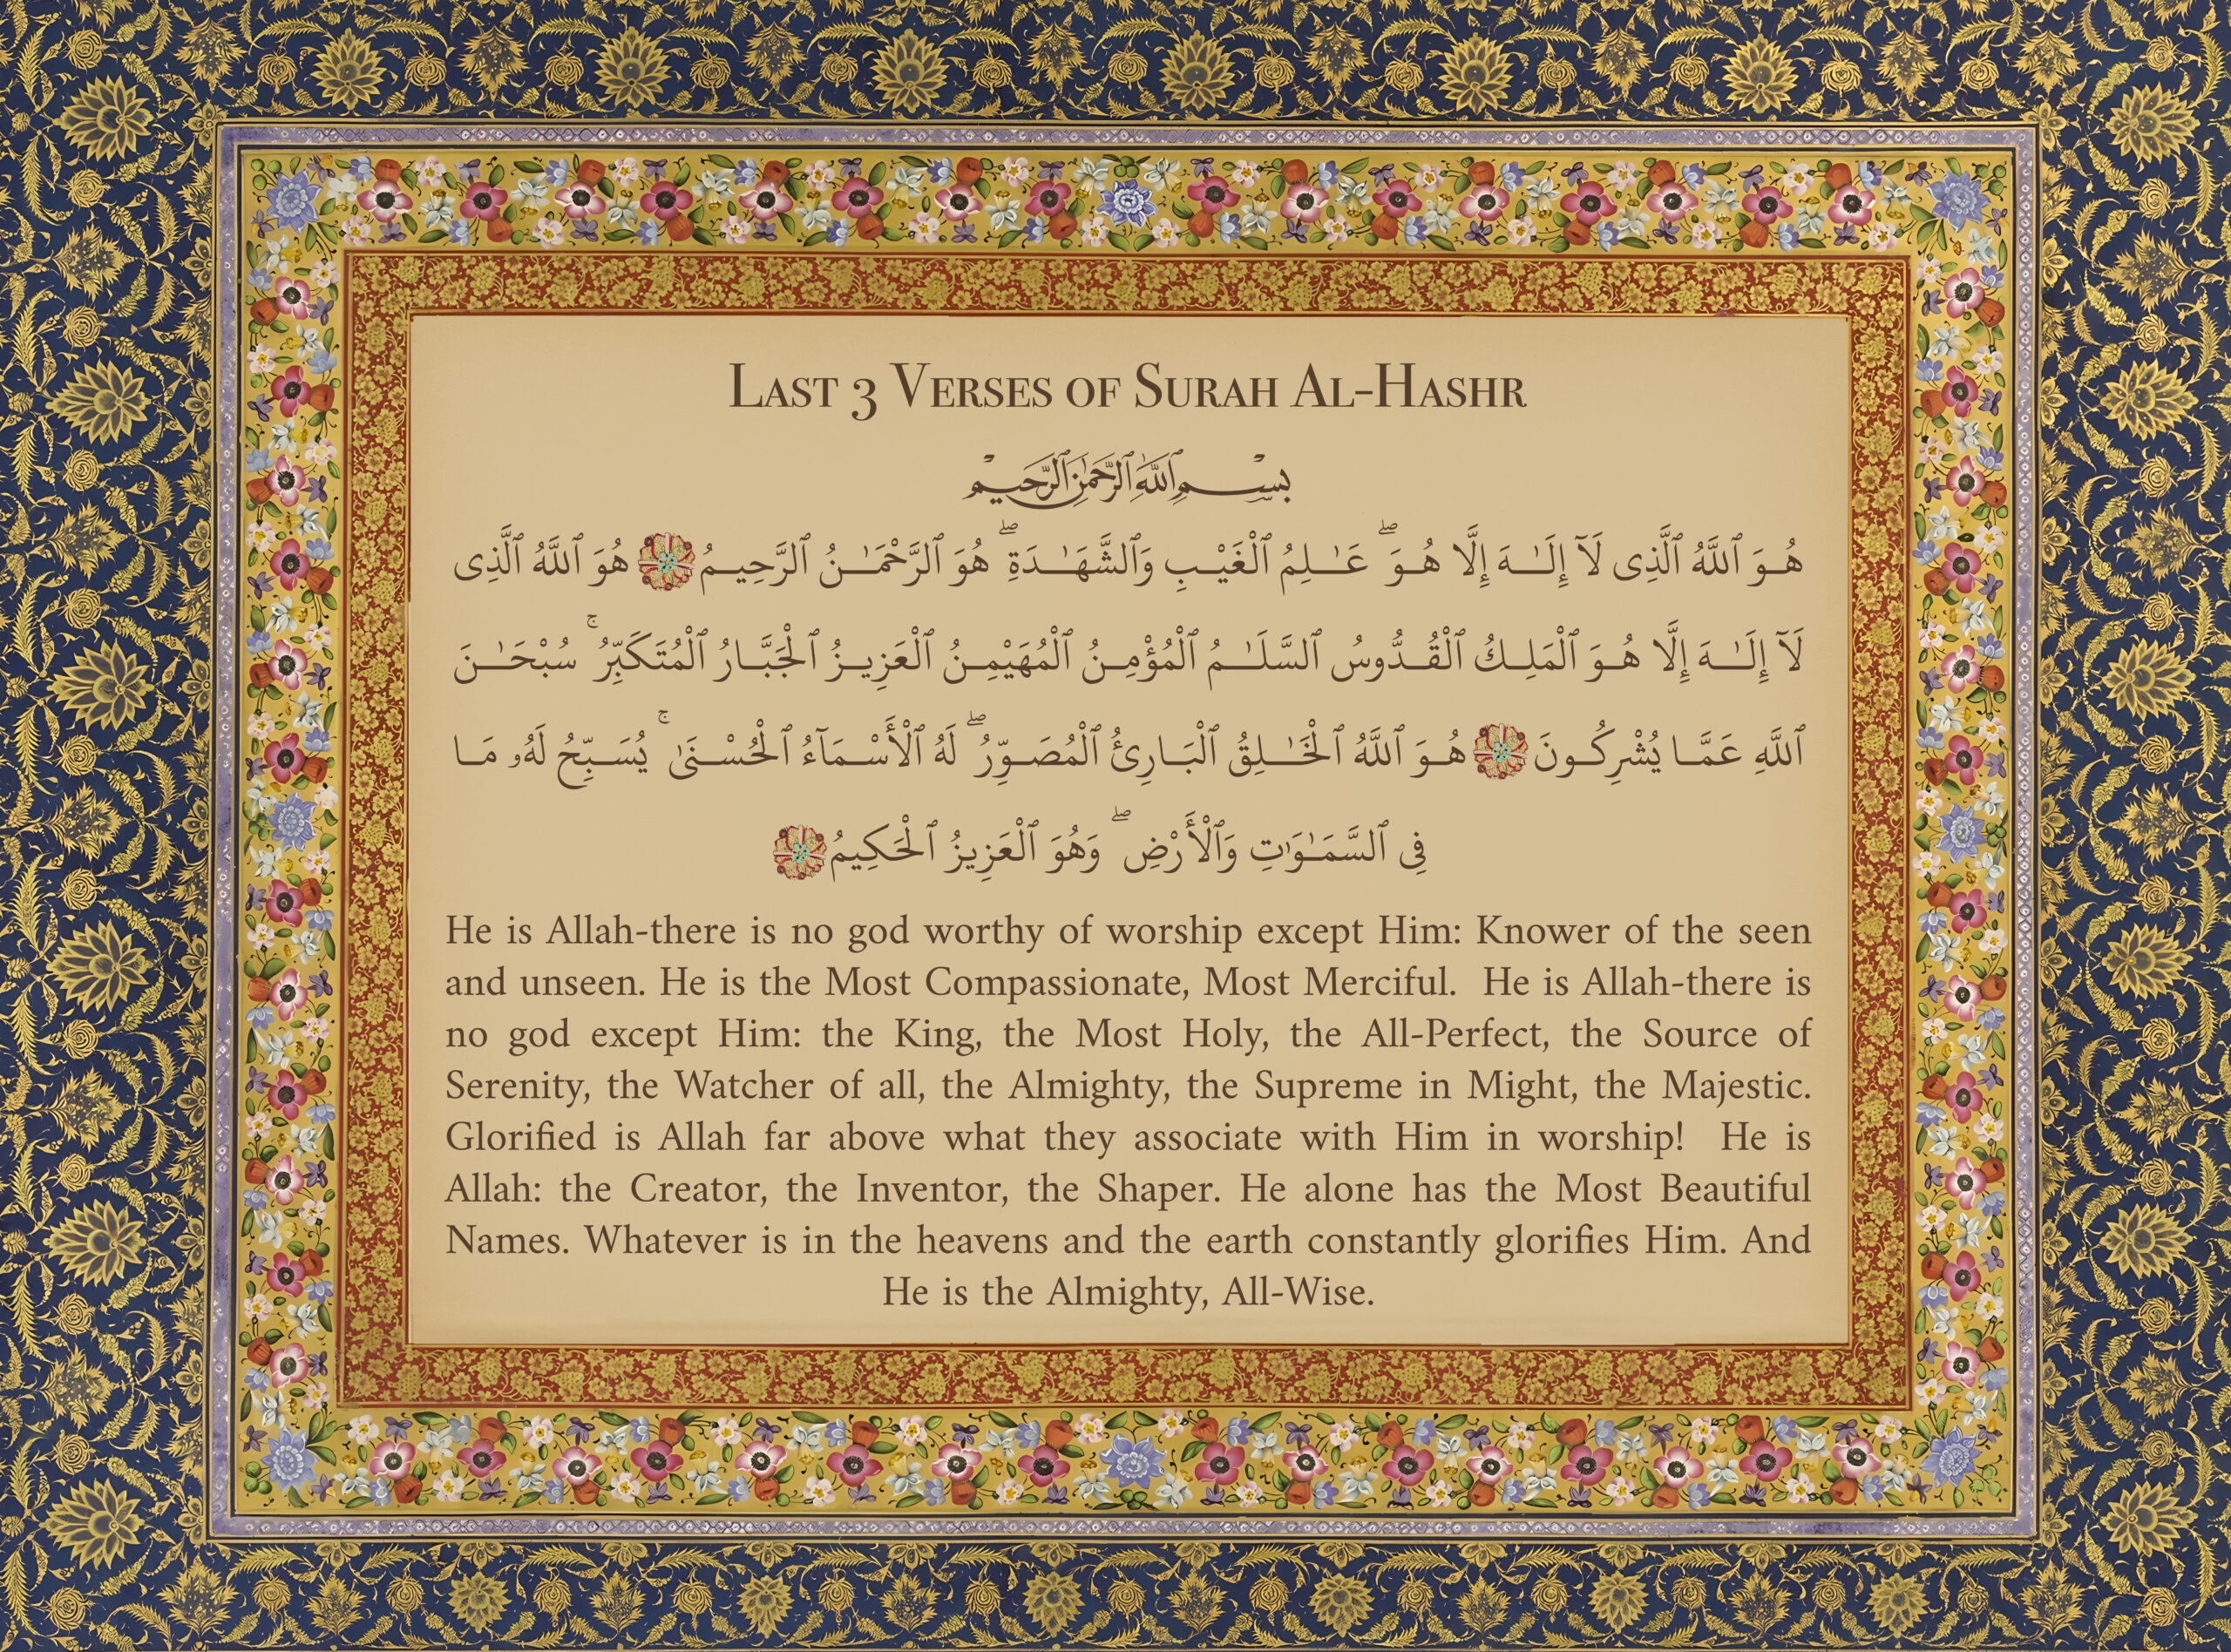 Last 3 Verses of Surah Al-Hashr
بِسْمِ ٱللَّهِ ٱلرَّحْمَٰنِ ٱلرَّحِيمِ
هُوَ ٱللَّهُ ٱلَّذِى لَآ إِلَـٰهَ إِلَّا هُوَ ۖ عَـٰلِمُ ٱلْغَيْبِ وَٱلشَّهَـٰدَةِ ۖ هُوَ ٱلرَّحْمَـٰنُ ٱلرَّحِيمُ هُوَ ٱللَّهُ ٱلَّذِى
لَآ إِلَـٰهَ إِلَّا هُوَ ٱلْمَلِكُ ٱلْقُدُّوسُ ٱلسَّلَـٰمُ ٱلْمُؤْمِنُ ٱلْمُهَيْمِنُ ٱلْعَزِيزُ ٱلْجَبَّارُ ٱلْمُتَكَبِّرُ ۚ سُبْحَـٰنَ
ٱللَّهِ عَمَّا يُشْرِكُونَ هُوَ ٱللَّهُ ٱلْخَـٰلِقُ ٱلْبَارِئُ ٱلْمُصَوِّرُ ۖ لَهُ ٱلْأَسْمَآءُ ٱلْحُسْنَىٰ ۚ يُسَبِّحُ لَهُۥ مَا
فِى ٱلسَّمَـٰوَٰتِ وَٱلْأَرْضِ ۖ وَهُوَ ٱلْعَزِيزُ ٱلْحَكِيمُ
He is Allah-there is no god worthy of worship except Him: Knower of the seen
and unseen. He is the Most Compassionate, Most Merciful. He is Allah-there is
no god except Him: the King, the Most Holy, the All-Perfect, the Source of
Serenity, the Watcher of all, the Almighty, the Supreme in Might, the Majestic.
Glorified is Allah far above what they associate with Him in worship! He is
Allah: the Creator, the Inventor, the Shaper. He alone has the Most Beautiful
Names. Whatever is in the heavens and the earth constantly glorifies Him. And
He is the Almighty, All-Wise.